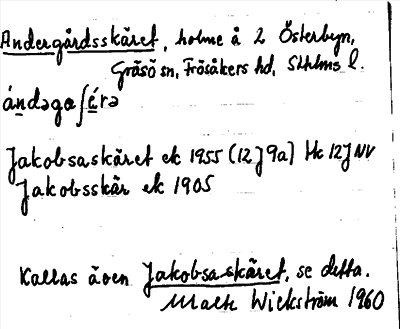 Andergårdsskäret, holme å 2 Österbyn,
Gräsö sn, Frösåkers hd, Sthlms l.
ándəgaʃę́rə
Jakobsaskäret ek 1955 (12J9a) Hk 12J NV
Jakobsskär ek 1905
Kallas även Jakobsaskäret, se detta.
Wickström 1960